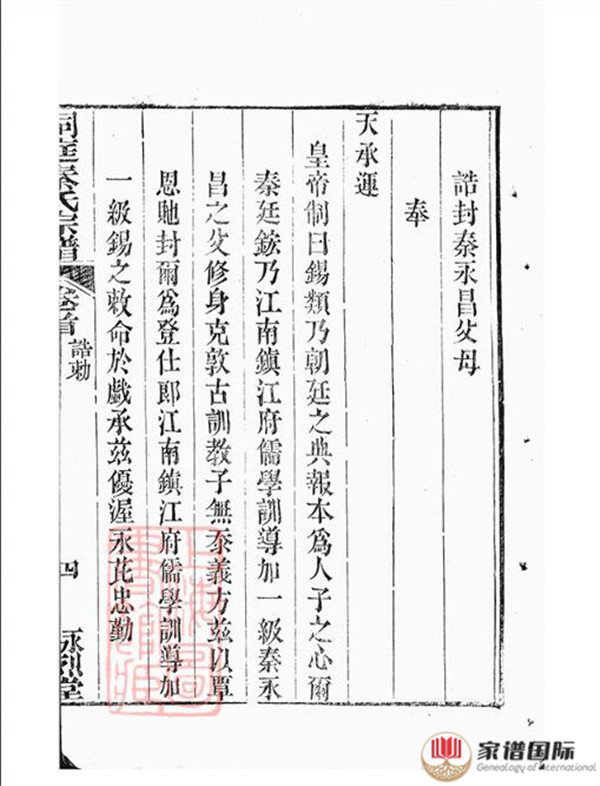 誥封秦永昌父母
奉
天承運
皇帝制曰錫類乃朝廷之典報本爲人子之心爾
秦廷鋐乃江南鎮江府儒學訓導加一級秦永
昌之父修身克敦古訓教子無忝義方茲以覃
恩馳封爾爲登仕郎江南鎮江府儒學訓導加
一級錫之敕命於戲承茲優渥永苾忠勤
洞庭秦氏宗譜
卷首
誥勅
四
永烈堂
家谱国际
Genealogy of International